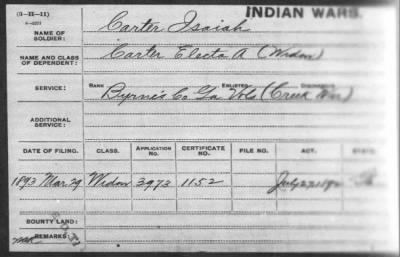 (3-II-11)
INDIAN WARS.
NAME OF SOLDIER: Carter Isaiah
NAME AND CLASS OF DEPENDENT: Carter Electa A (Widow)
SERVICE: RANK ENLISTED DISCHARGED
Byrne's Co Ga Vols (Creek War)
ADDITIONAL SERVICE:
DATE OF FILING. CLASS. APPLICATION NO. CERTIFICATE NO. FILE NO. ACT. STATE
1893 Mar 29 Widow 3973 1152 July 27, 1892
BOUNTY LAND:
REMARKS: